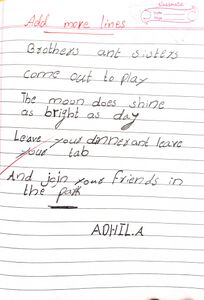 Add more lines
Brothers ant sisters
Come out to play
The moon does shine
as bright as day
Leave your dinner ant leave
your tab
And join your friends in
the park
ADHIL.A